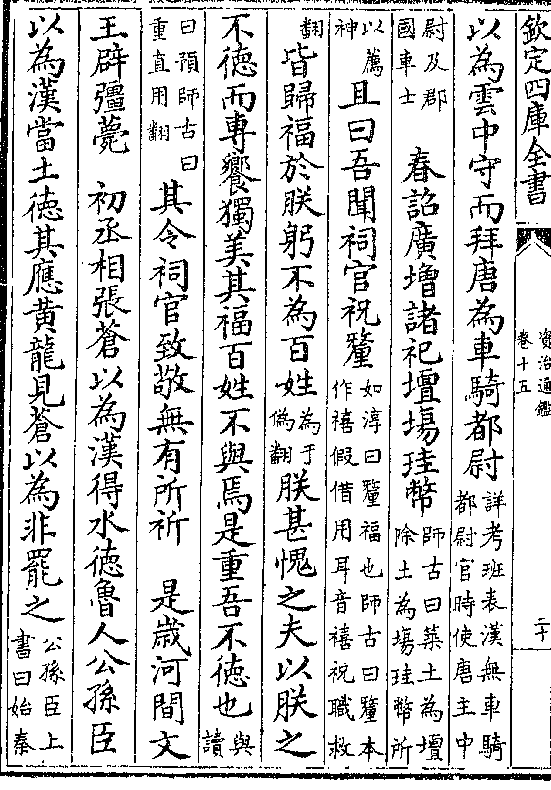 欽定四庫全書
資治通鑑
卷十五
二十
以為雲中守而拜唐為車騎都尉詳考班表漢無車騎都尉官時使唐主中
尉及郡國車士　春詔廣增諸祀壇塲珪幣師古曰築土為壇除土為塲珪幣所
以薦神且曰吾聞祠官祝釐如淳曰釐福也師古曰釐本作禧假借用耳音禧祝職救
翻皆歸福於朕躬不為百姓為于偽翻朕甚愧之夫以朕之
不徳而專饗獨美其福百姓不與焉是重吾不徳也與讀
曰預師古曰重直用翻其令祠官致敬無有所祈　是歲河間文
王辟彊薨　初丞相張蒼以為漢得水徳魯人公孫臣
以為漢當土徳其應黄龍見蒼以為非罷之公孫臣上書曰始秦